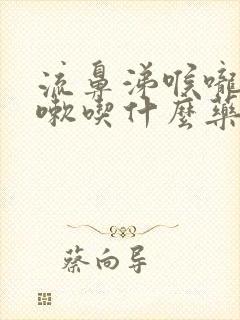 流鼻涕喉嚨
嗽喫什麼藥
蔡向导